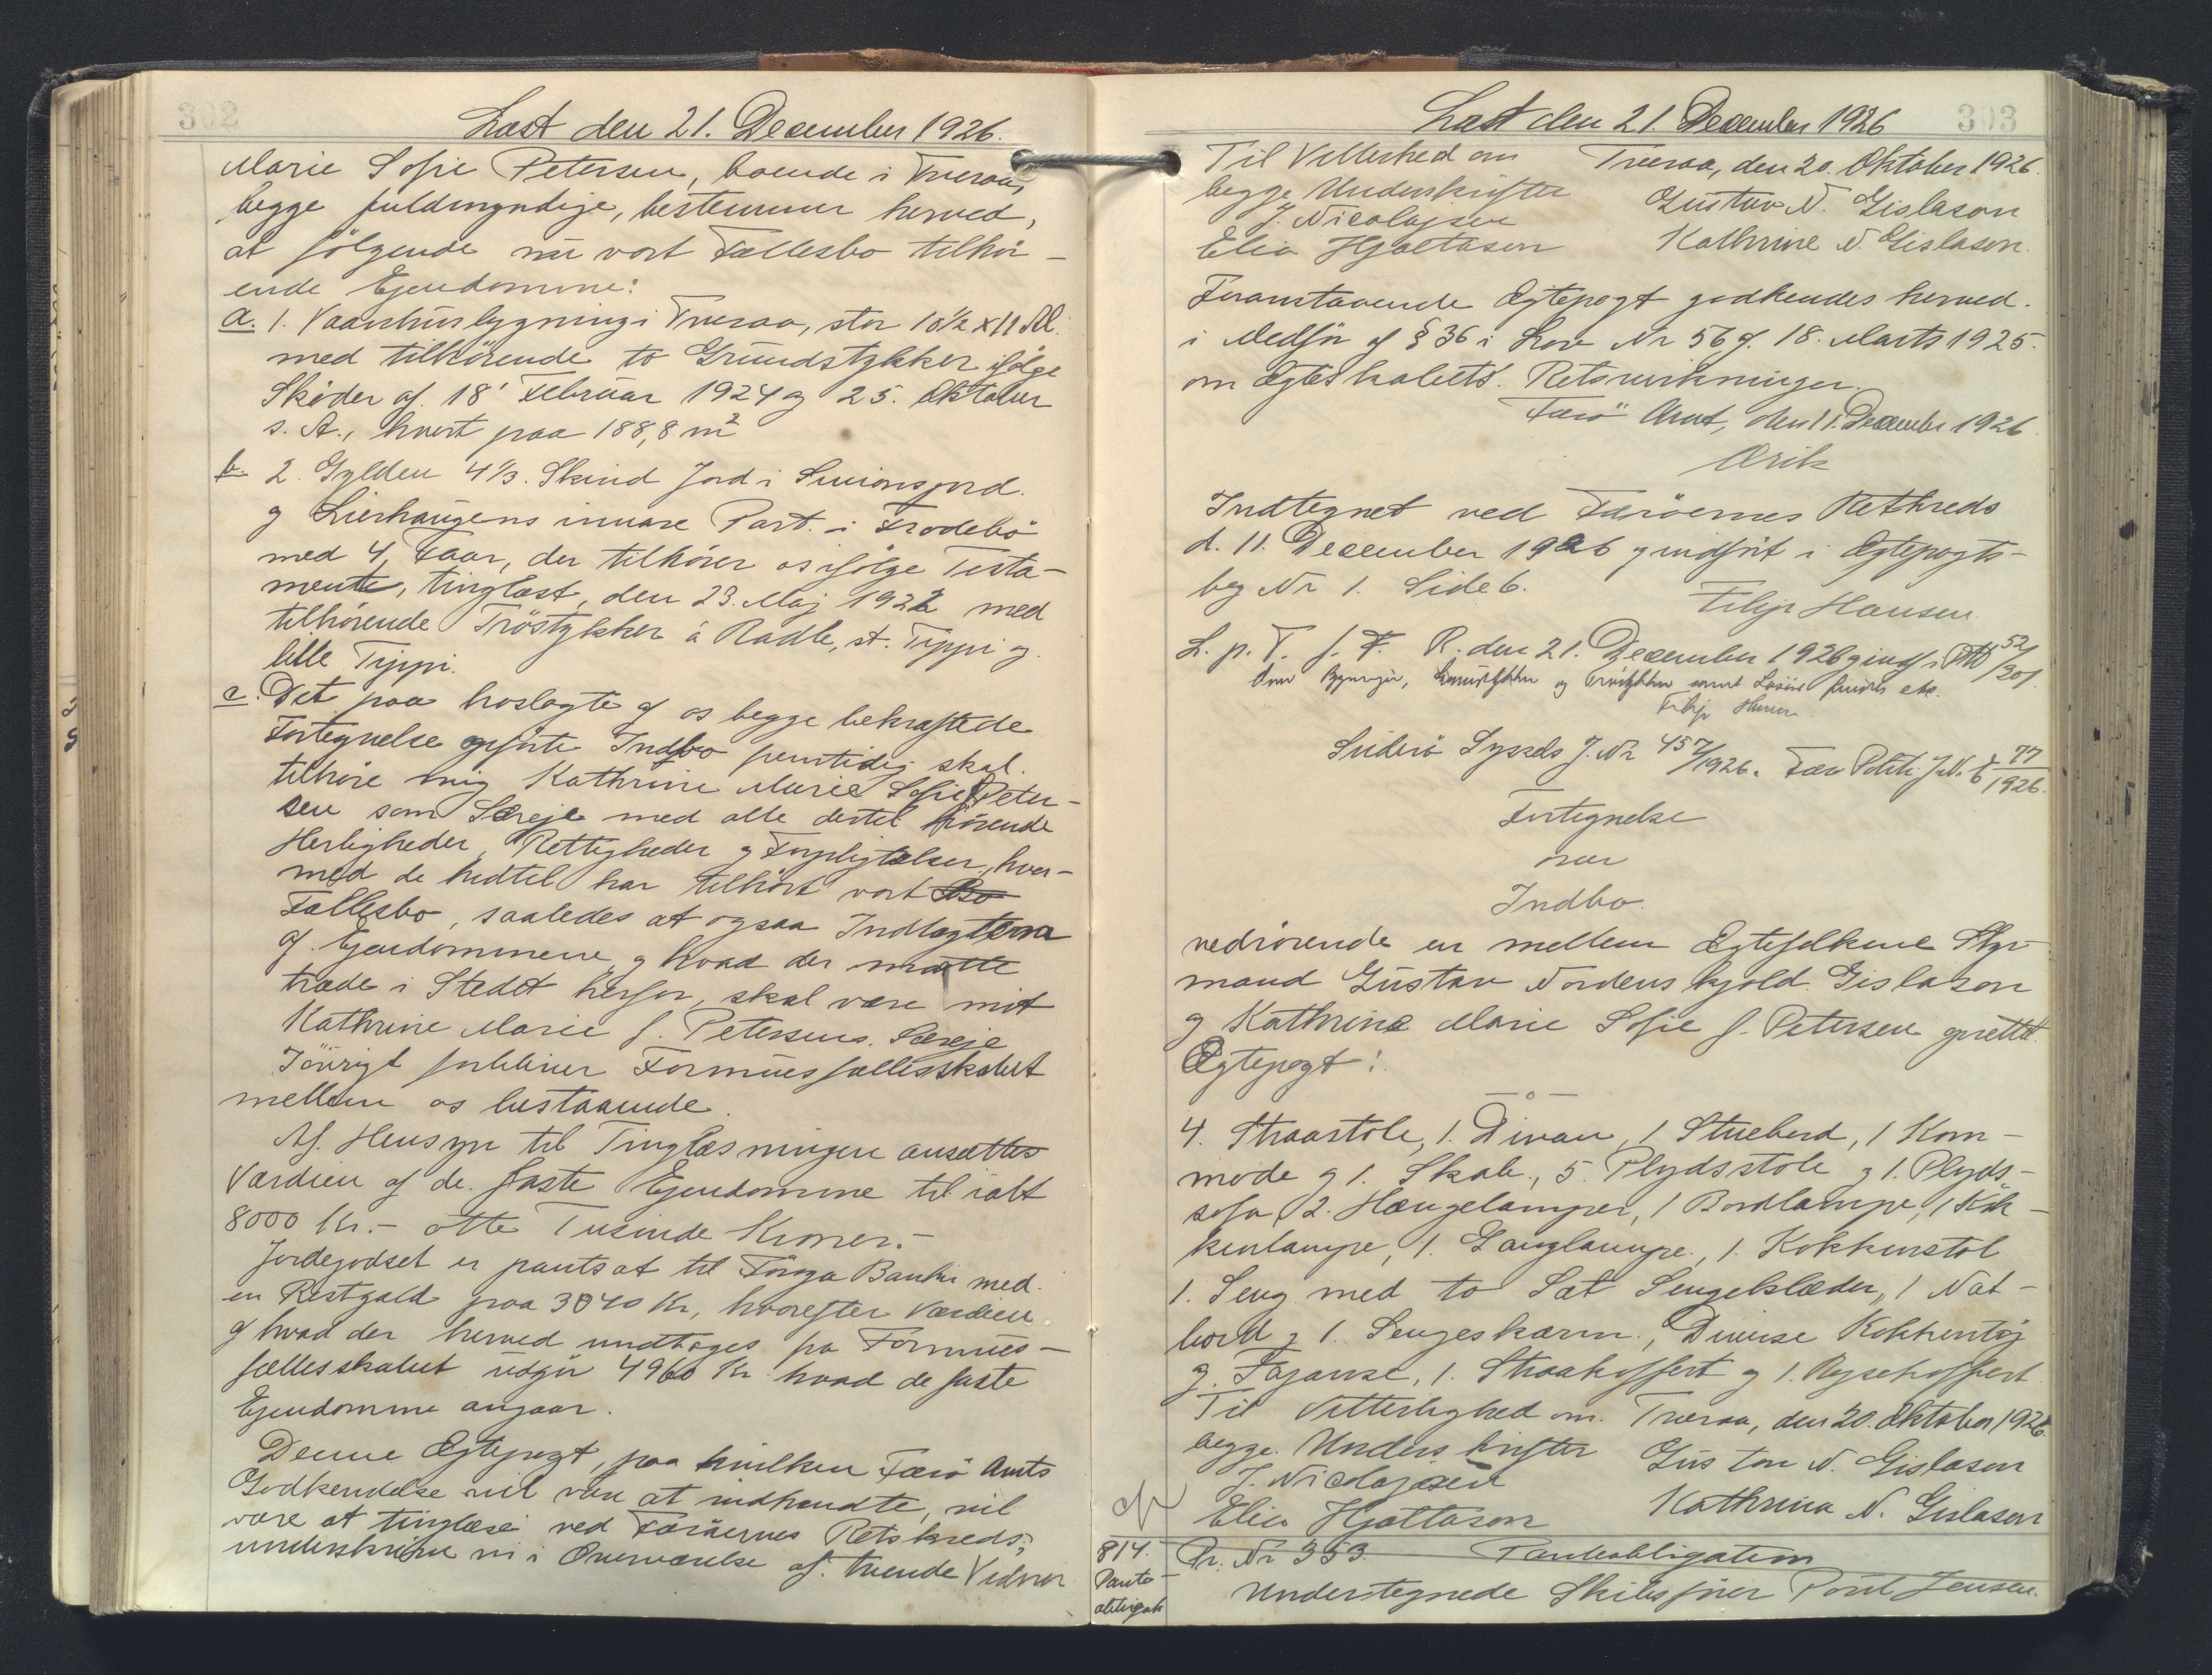 302
Læst den 21. December 1926.
Marie Sofie Petersen, boende i Tveraa,
begge fuldmyndige, bestemmer herved,
at følgende nu vort Fællesbo tilhør-
ende Ejendomme:
a. 1. Vaaningshusbygning i Tveraa, stor 10½ x 11 Al.
med tilhörende to Grundstykker ifølge
Skøder af 18' Februar 1924 og 25. Oktober
s. A., hvert paa 188,8 m²
b. 2. Gylden 4⅓ Skind Jord i
og Lierhaugens innare Part i Frodebö
med 4 Faar, der tilhører os ifølge Testa-
mente, tinglæst, den 23. Maj 1922 med
tilhørende Tröstykker á Radle, st. Tippi og
lille Tippi.
c. Det paa hoslagte af os begge bekræftede
Fortegnelse opførte Indbo fremtidig skal
tilhøre mig Kathrine Marie Sofie f. Peter-
sen som Særeje med alle dertil hørende
Herligheder, Rettigheder og Forpligtelser, hvor-
med de hidtil har tilhört vort Bo
Fællesbo, saaledes at ogsaa Indtægterne
af Ejendommene og hvad der maatte
træde i Stedet herfor, skal være mit
Kathrine Marie f. Petersens Særeje
Iøvrigt forbliver Formuesfællesskabet
mellem os bestaaende.
Af Hensyn til Tinglæsningen ansættes
Værdien af de faste Ejendomme til ialt
8000 Kr.- otte Tusinde Kroner.-
Jordegodset er pantsat til Föroya Banki med
en Restgæld paa 3040 Kr, hvorefter Værdien
af hvad der herved undtages fra Formues-
fællesskabet udgör 4960 Kr hvad de faste
Ejendomme angaar.
Denne Ægtepagt, paa hvilken Færö Amts
Godkendelse vil være at indhendte, vil
være at tinglæse ved Færöernes Retskreds,
underskrive vi i Overværelse af tvende Vidner
303
Læst den 21. December 1926
Til Vitterlighed om Tveraa, den 20. Oktober 1926.
begge Underskrifter Gustav N. Gislason
J. Nicolajsen Kathrine N. Gislason.
Elia Hjaltason
Foranstaaende Ægtepagt godkendes herved
i Medför af § 36 i Lov Nr 56 af 18. Marts 1925
om Ægteskabets Retsvirkninger.
Færö Amt, den 11. December 1926
Indtegnet ved Færöernes Retkreds
d. 11. December 1926 og indført i Ægtepagts-
bog Nr 1. Side 6.
Filip Hansen.
L. p. T. f. F. R. den 21. December 1926 og indf. i 52/201
samt Lösöre
Filip Hansen
Suderö Syssels J. Nr 457/1926. Fær Politi J.N. 77/1926.
Fortegnelse
over
Indbo.
vedrörende en mellem Ægtefolkene Styr-
mand Gustav Nordenskjold Gislason
og Kathrine Marie Sofie f. Petersen oprettet
Ægtepagt:
— o —
4. Straastole, 1. Divan, 1 Stuebord, 1 Kom-
mode og 1. Skab, 5. Plydsstole og 1. Plyds-
sofa, 2. Hængelamper, 1 Bordlampe, 1 Køk-
kenlampe, 1. Ganglampe, 1. Kokkenstol
1. Seng med to Sæt Sengeklæder, 1 Nat-
bord og 1. Sengeskærm., Diverse Kokkentöj
og Fajanse, 1. Straakoffert og 1. Rejsekoffert
Til Vitterlighed om Tveraa, den 20. Oktober 1926.
begge Underskrifter Gustav N. Gislason
J. Nicolajsen Kathrina N. Gislason
Elia Hjaltason
814. Pr. Nr 353. Panteobligation
Pante-
obligat. Undertegnede Skibsfører Poul Jensen